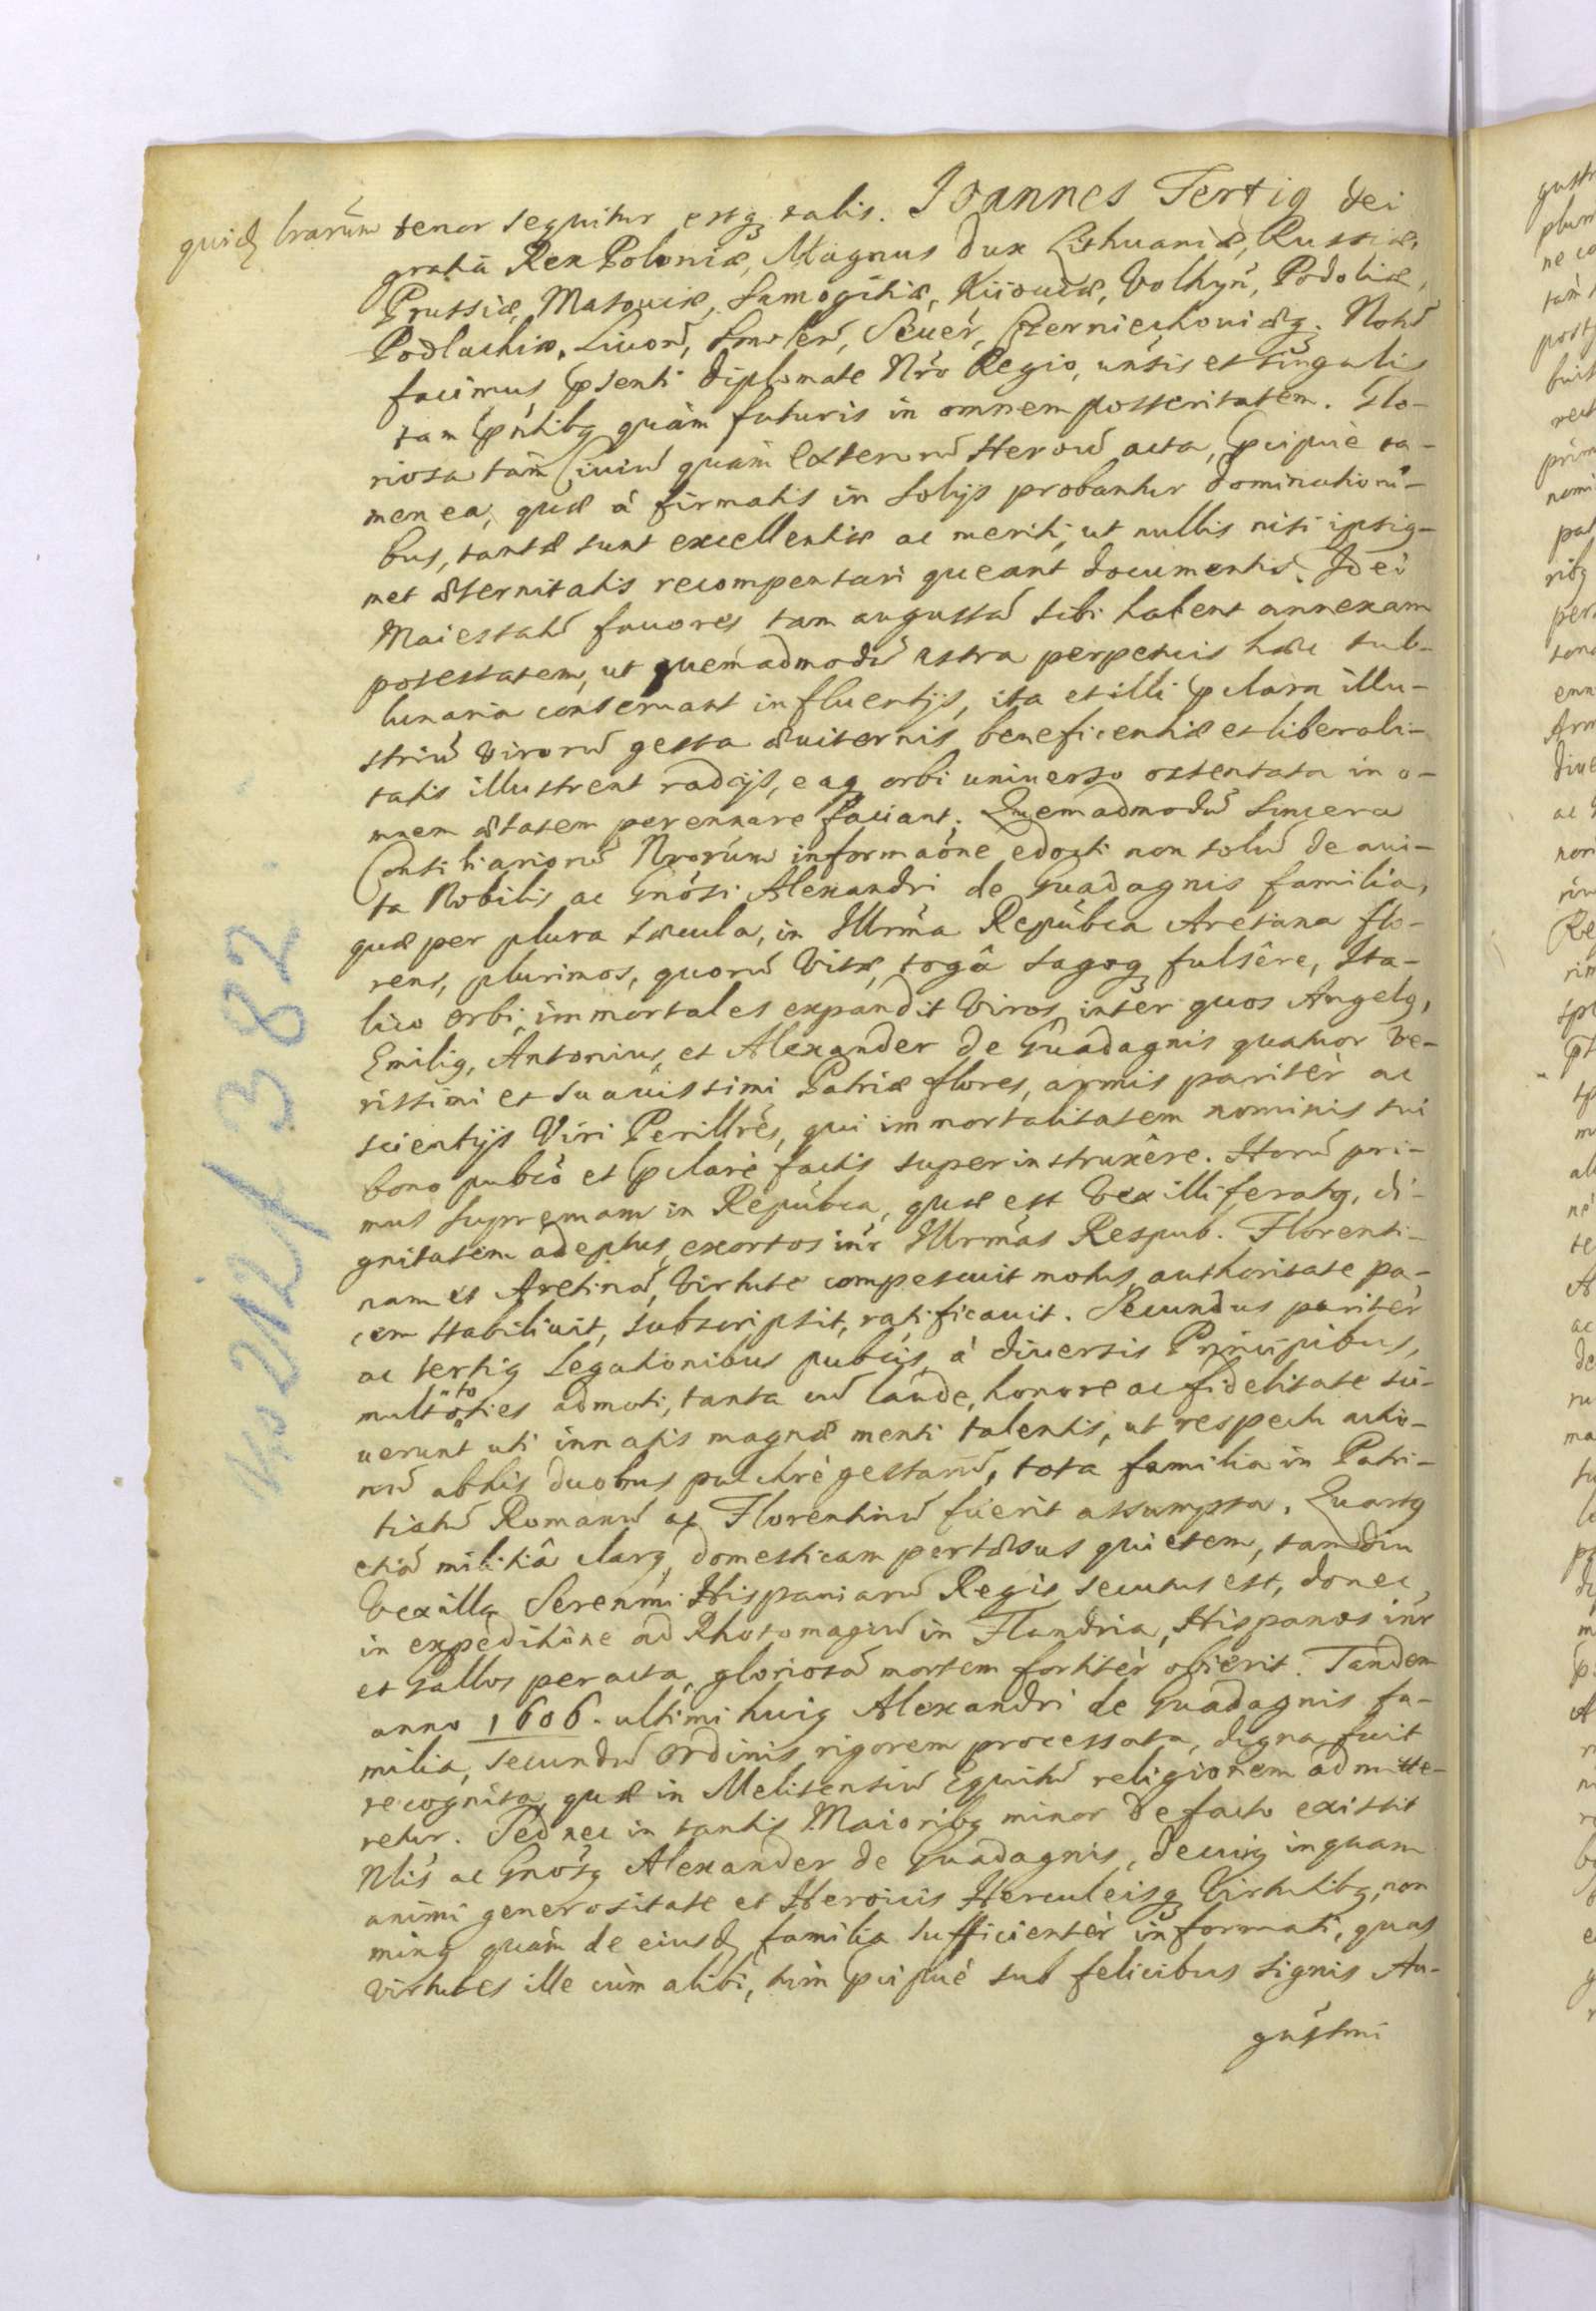 quidē lrarum tenor sequitur estq talis. Joannes Tertig Dei
gratia Rex Poloniæ, Magnus Dux Lithuaniæ, Russiæ,
Prussiæ, Masouiæ, Samogitiæ, Kiiouiæ, Volhyn̄, Podoliæ,
Podlachiæ, Liuon̄, Smolen̄, Seuer̄, Czerniechouiæq. Notū
facimus pr̄senti Diplomate Nr̄o Regio, un̄sis et singulis
tam pr̄ntibq quàm futuris in omnem posteritatem. Glo-
riosa tàm Ciuiū quàm Exterorū Heroū acta, pr̄cipuè ta-
men ea, quæ à firmatis in Solijs probantur dominationi-
bus, tantæ sunt excellentiæ ac meriti, ut nullis nisi ipsig-
met æternitatis recompensari queant documentis. Ideò
Maiestatū fauores tam augustā sibi habent annexam
potestatem, ut quemadmodū astra perpetuis hæc sub-
lunaria conseruant influentijs, ita et illi pr̄clara illu-
striū Virorū gesta æuiternis beneficentiæ et liberali-
tatis illustrent radijs, eaq orbi uniuerso ostentata in o-
mnem ætatem perennare faciant. Quemadmodū Sincera
Consiliariorū Nr̄orum informaōne edocti non solū de aui-
ta Nobilis ac Gn̄osi Alexandri de Guadagnis familia,
quæ per plura sæcula, in Illrm̄a Repub̄ca Aretana flo-
rens, plurimos, quorū Vitæ, togâ sagoq fulsêre, Ita-
lico Orbi immortales expandit Viros, inter quos Angelq,
Emiliq, Antonius, et Alexander de Guadagnis quatuor ve-
rissimi et suauissimi Patriæ flores, armis paritèr ac
scientijs Viri Perillrēs, qui immortalitatem nominis sui
bono pub̄co et pr̄clarè factis superinstruxêre. Horū pri-
mus Supremam in Repub̄ca, quæ est Vexilliferatq, di-
gnitatem adeptus, exortos intr̄ Illrm̄as Respub. Florenti-
nam et Aretinā, Virtute compescuit motus, authoritate pa-
cem stabiliuit, subscripsit, ratificauit. Secundus paritèr
ac tertiq Legationibus pub̄cis à diuersis Principibus,
multoties admoti, tanta cū laude, honore ac fidelitate su-
to
uerunt uti innatis magnæ menti talentis, ut respectu actio-
nū ab his duobus pulchrè gestarū, tota familia in Patri-
tiatū Romanū ac Florentinū fuerit assumpta. Quartq
etiā militiâ clarq, domesticam pertæsus quietem, tamdiu
Vexilla Serenmi Hispaniarū Regis secutus est, donec
in expeditiōne ad Rhotomagū in Flandria, Hispanos intr̄
et Gallos peracta, gloriosā mortem fortitèr obierit. Tandem
anno 1606. ultimi huiq Alexandri de Guadagnis fa-
milia, secundū Ordinis rigorem processata, digna fuit
recognita, quæ in Melitensiū Equitū religionem admitte-
retur. Sed nec in tantis Maioribq minor de facto existit
Nlis ac Gnōsq Alexander de Guadagnis, de cuiq inquam
animi generositate et Heroicis Herculeisq Virtutibq, non
minq quàm de eiusdē familia sufficientèr informati, quas
virtutes ille cùm alibi, tùm pr̄cipuè sub felicibus signis Au-
gustmi
No 212/382